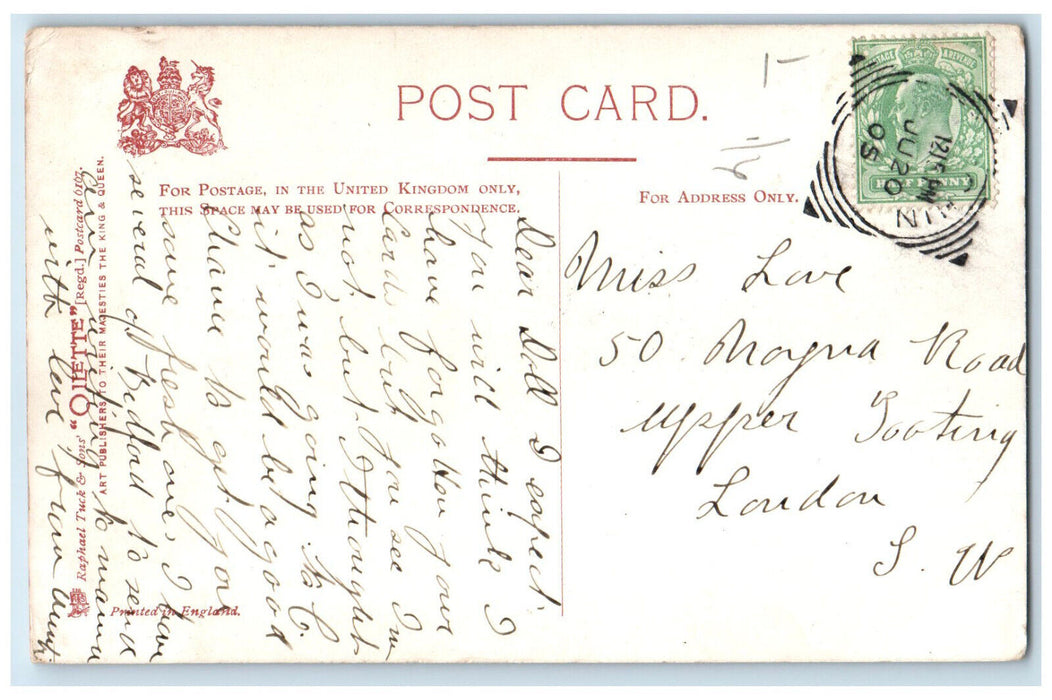 POST CARD.
FOR POSTAGE, IN THE UNITED KINGDOM ONLY,
THIS SPACE MAY BE USED FOR CORRESPONDENCE.
FOR ADDRESS ONLY.
POSTAGE REVENUE
HALF PENNY
1215 PM
JU 20
05
Miss Love
50 Moyna Road
Upper Tooting
London
S. W
Dear Doll I expect
you will think I
have forgotten your
Cards but you see I
not, but I thought
as I was going to B
it would be a good
chance to get you
some fresh ones, I have
several of Bedford to send
Am writing to mama
with love from Aunt
Raphael Tuck & Sons' "OILETTE" [Regd.] Postcard 6167.
ART PUBLISHERS TO THEIR MAJESTIES THE KING & QUEEN.
Printed in England.